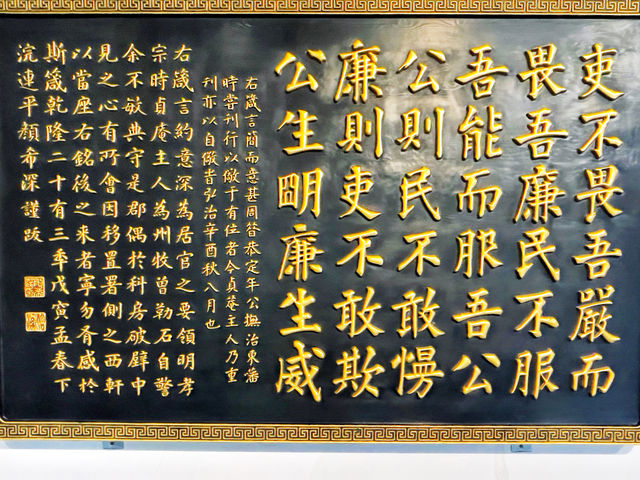 吏不畏吾嚴而
畏吾廉民不服
吾能而服吾公
公則民不敢慢
廉則吏不敢欺
公生眀廉生威
右箴言簡而意甚周昔恭定年公撫治東藩
時嘗刊行以儆于有位者今貞菴主人乃重
刊亦以自儆旹弘治辛酉秋八月也
右箴言約意深為居官之要領明孝
宗時貞庵主人為州牧曾勒石自警
余不敏典守是郡偶於科房破壁中
見之心有所會因移置署側之西軒
以當座右銘後之来者寧勿有感於
斯箴乾隆二十有三年戊寅孟春下
浣連平顏希深謹跋